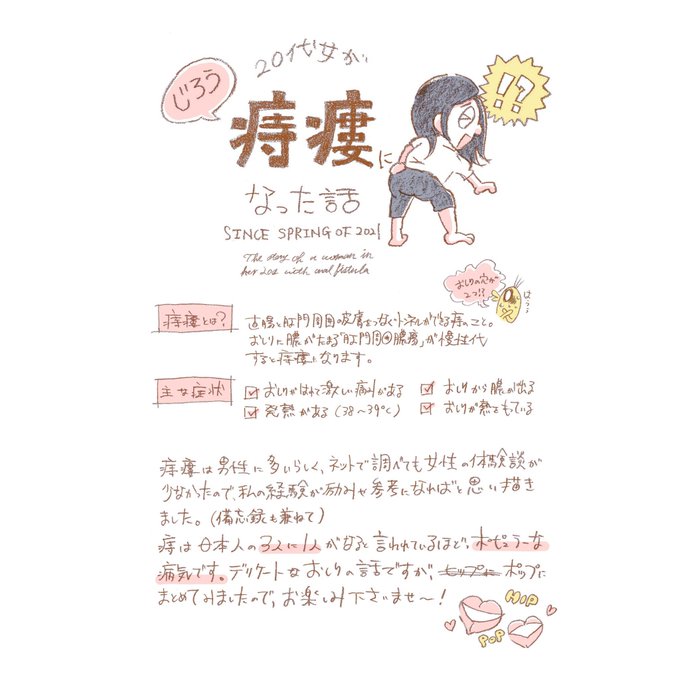 20代女が
じろう
!?
痔瘻に
なった話
SINCE SPRING OF 2021
The story of a woman in
her 20s with anal fistula
おしりの穴が
2つ!?
痔瘻とは?
直腸と肛門周囲の皮膚をつなぐトンネルができる痔のこと。
おしりに膿がたまる「肛門周囲膿瘍」が慢性化
すると痔瘻になります。
主な症状
おしりがはれて激しい痛みがある
おしりから膿が出る
発熱がある(38〜39℃)
おしりが熱をもっている
痔瘻は男性に多いらしく、ネットで調べても女性の体験談が
少なかったので、私の経験が励みや参考になればと思い描き
ました。(備忘録も兼ねて)
痔は日本人の3人に1人がなると言われているほど、ポピュラーな
病気です。デリケートなおしりの話ですが、ヒップにポップに
まとめてみましたので、お楽しみ下さいませ〜!
HIP
POP